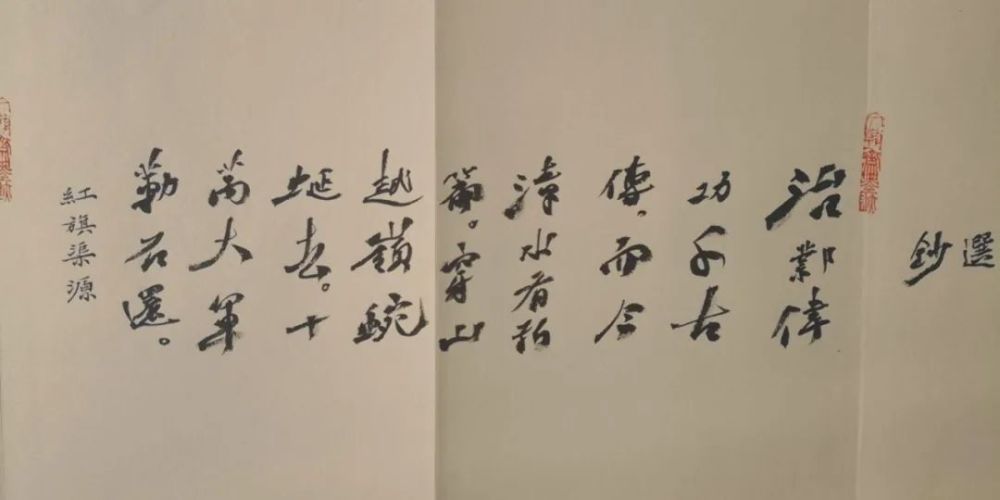 選
鈔
治鄴偉
功千古
傳，而今
漳水有新
篇。穿山
越嶺蜿
蜒去。十
萬大軍
勒石還。
紅旗渠源